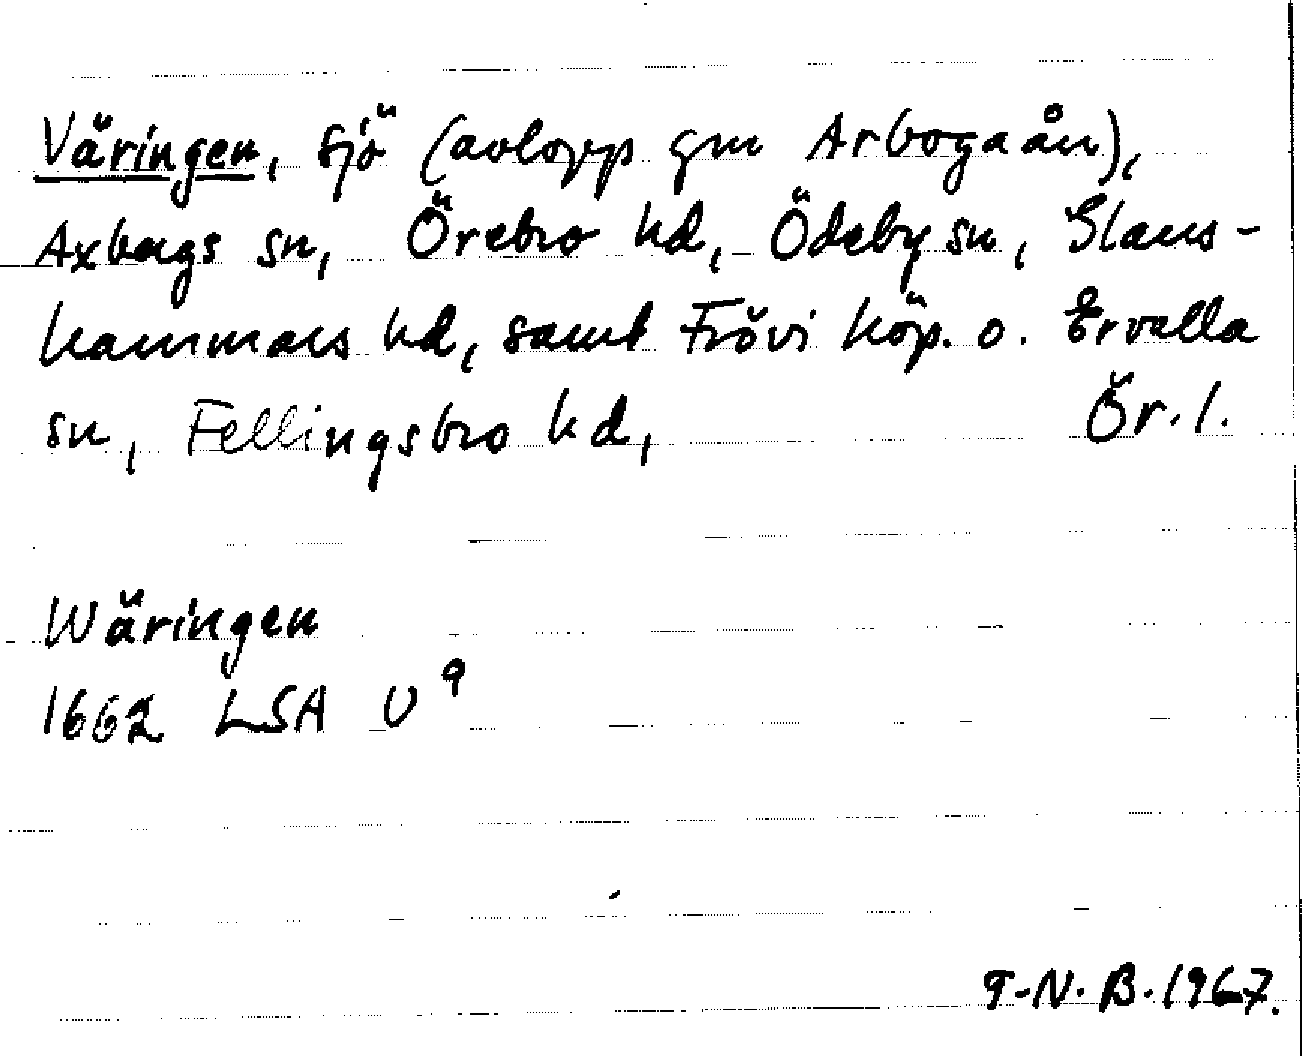 Väringen, sjö (avlopp gm Arbogaån),
Axbergs sn, Örebro hd, Ödeby sn, Glans-
hammars hd, samt Frövi köp. o. Ervalla
sn, Fellingsbro hd, Ör. l.
Wäringen
1662 LSA U 9
T-N. B. 1967.